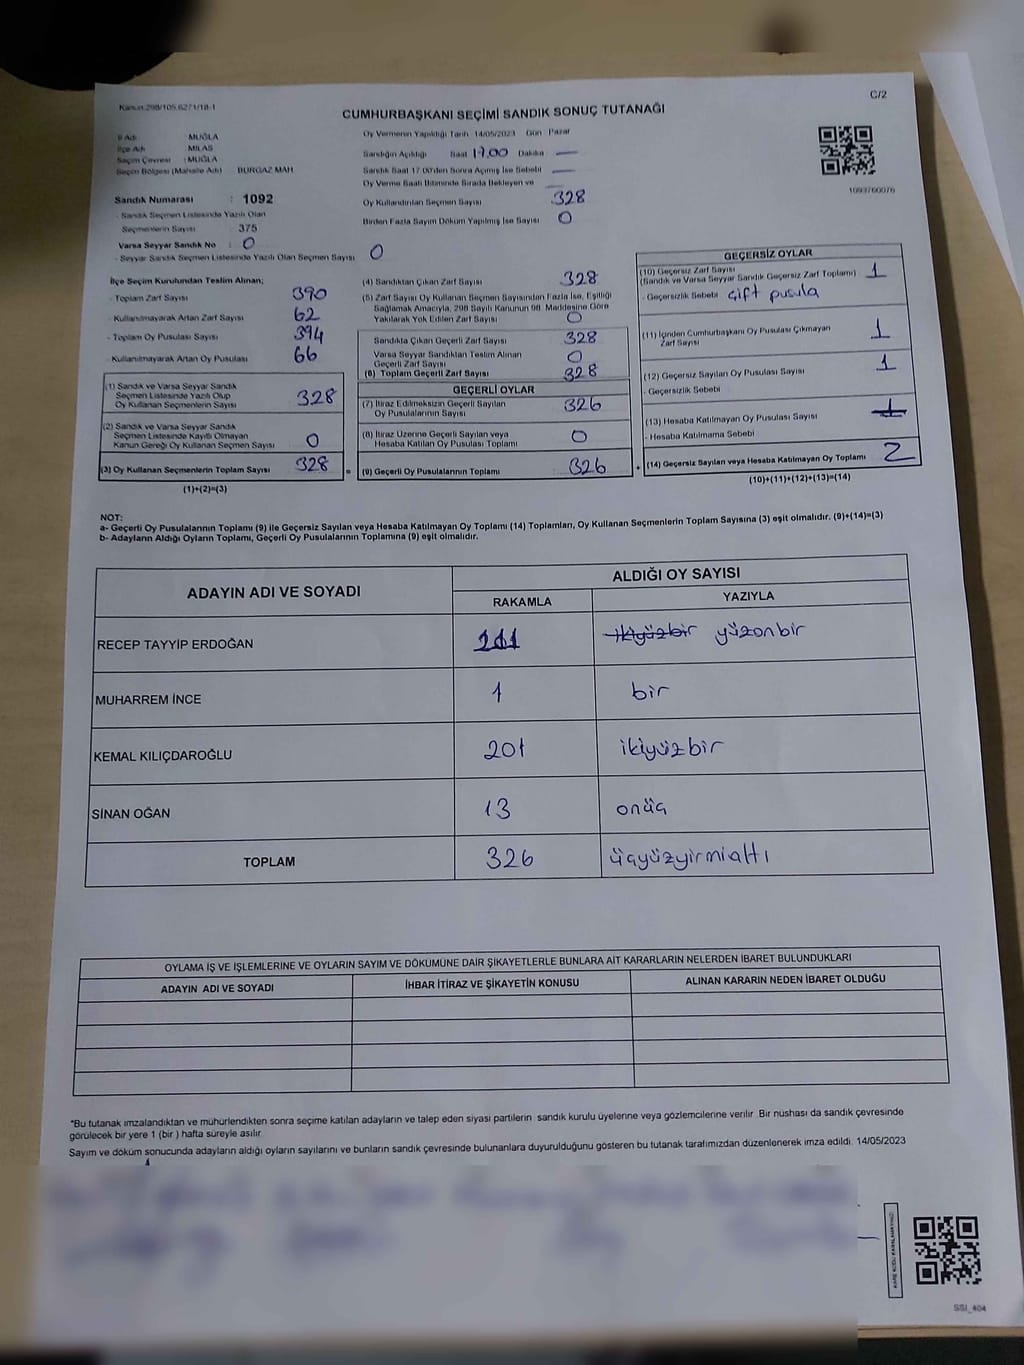 Kanun:298/105,6271/18-1
C/2
CUMHURBAŞKANI SEÇİMİ SANDIK SONUÇ TUTANAĞI
İl Adı : MUĞLA
İlçe Adı : MİLAS
Seçim Çevresi : MUĞLA
Seçim Bölgesi (Mahalle Adı) : BURGAZ MAH
Sandık Numarası : 1092
- Sandık Seçmen Listesinde Yazılı Olan
Seçmenlerin Sayısı 375
Varsa Seyyar Sandık No : 0
- Seyyar Sandık Seçmen Listesinde Yazılı Olan Seçmen Sayısı 0
Oy Vermenin Yapıldığı Tarih 14/05/2023 Gün Pazar
Sandığın Açıldığı Saat 17.00 Dakika —
Sandık Saat 17.00'den Sonra Açılmış İse Sebebi —
Oy Verme Saati Bitiminde Sırada Bekleyen ve
Oy Kullandırılan Seçmen Sayısı 328
Birden Fazla Sayım Döküm Yapılmış İse Sayısı 0
1093760076
İlçe Seçim Kurulundan Teslim Alınan;
- Toplam Zarf Sayısı 390
- Kullanılmayarak Artan Zarf Sayısı 62
- Toplam Oy Pusulası Sayısı 394
- Kullanılmayarak Artan Oy Pusulası 66
(1) Sandık ve Varsa Seyyar Sandık
Seçmen Listesinde Yazılı Olup
Oy Kullanan Seçmenlerin Sayısı 328
(2) Sandık ve Varsa Seyyar Sandık
Seçmen Listesinde Kayıtlı Olmayan
Kanun Gereği Oy Kullanan Seçmen Sayısı 0
(3) Oy Kullanan Seçmenlerin Toplam Sayısı 328
(1)+(2)=(3)
(4) Sandıktan Çıkan Zarf Sayısı 328
(5) Zarf Sayısı Oy Kullanan Seçmen Sayısından Fazla İse, Eşitliği
Sağlamak Amacıyla, 298 Sayılı Kanunun 98. Maddesine Göre
Yakılarak Yok Edilen Zarf Sayısı 0
Sandıkta Çıkan Geçerli Zarf Sayısı 328
Varsa Seyyar Sandıktan Teslim Alınan
Geçerli Zarf Sayısı 0
(6) Toplam Geçerli Zarf Sayısı 328
GEÇERLİ OYLAR
(7) İtiraz Edilmeksizin Geçerli Sayılan
Oy Pusulalarının Sayısı 326
(8) İtiraz Üzerine Geçerli Sayılan veya
Hesaba Katılan Oy Pusulası Toplamı 0
= (9) Geçerli Oy Pusulalarının Toplamı 326
GEÇERSİZ OYLAR
(10) Geçersiz Zarf Sayısı
(Sandık ve Varsa Seyyar Sandık Geçersiz Zarf Toplamı) 1
- Geçersizlik Sebebi çift pusula
(11) İçinden Cumhurbaşkanı Oy Pusulası Çıkmayan
Zarf Sayısı 1
(12) Geçersiz Sayılan Oy Pusulası Sayısı 1
- Geçersizlik Sebebi
(13) Hesaba Katılmayan Oy Pusulası Sayısı 1
- Hesaba Katılmama Sebebi
+ (14) Geçersiz Sayılan veya Hesaba Katılmayan Oy Toplamı 2
(10)+(11)+(12)+(13)=(14)
NOT:
a- Geçerli Oy Pusulalarının Toplamı (9) ile Geçersiz Sayılan veya Hesaba Katılmayan Oy Toplamı (14) Toplamları, Oy Kullanan Seçmenlerin Toplam Sayısına (3) eşit olmalıdır. (9)+(14)=(3)
b- Adayların Aldığı Oyların Toplamı, Geçerli Oy Pusulalarının Toplamına (9) eşit olmalıdır.
ADAYIN ADI VE SOYADI
ALDIĞI OY SAYISI
RAKAMLA YAZIYLA
RECEP TAYYİP ERDOĞAN 111 ikiyüzbir yüzonbir
MUHARREM İNCE 1 bir
KEMAL KILIÇDAROĞLU 201 ikiyüzbir
SİNAN OĞAN 13 onüç
TOPLAM 326 üçyüzyirmialtı
OYLAMA İŞ VE İŞLEMLERİNE VE OYLARIN SAYIM VE DÖKÜMÜNE DAİR ŞİKAYETLERLE BUNLARA AİT KARARLARIN NELERDEN İBARET BULUNDUKLARI
ADAYIN ADI VE SOYADI İHBAR İTİRAZ VE ŞİKAYETİN KONUSU ALINAN KARARIN NEDEN İBARET OLDUĞU
*Bu tutanak imzalandıktan ve mühürlendikten sonra seçime katılan adayların ve talep eden siyasi partilerin sandık kurulu üyelerine veya gözlemcilerine verilir. Bir nüshası da sandık çevresinde
görülecek bir yere 1 (bir) hafta süreyle asılır.
Sayım ve döküm sonucunda adayların aldığı oyların sayılarını ve bunların sandık çevresinde bulunanlara duyurulduğunu gösteren bu tutanak tarafımızdan düzenlenerek imza edildi. 14/05/2023
KARE KODU KARALAMAYINIZ
SSI_404